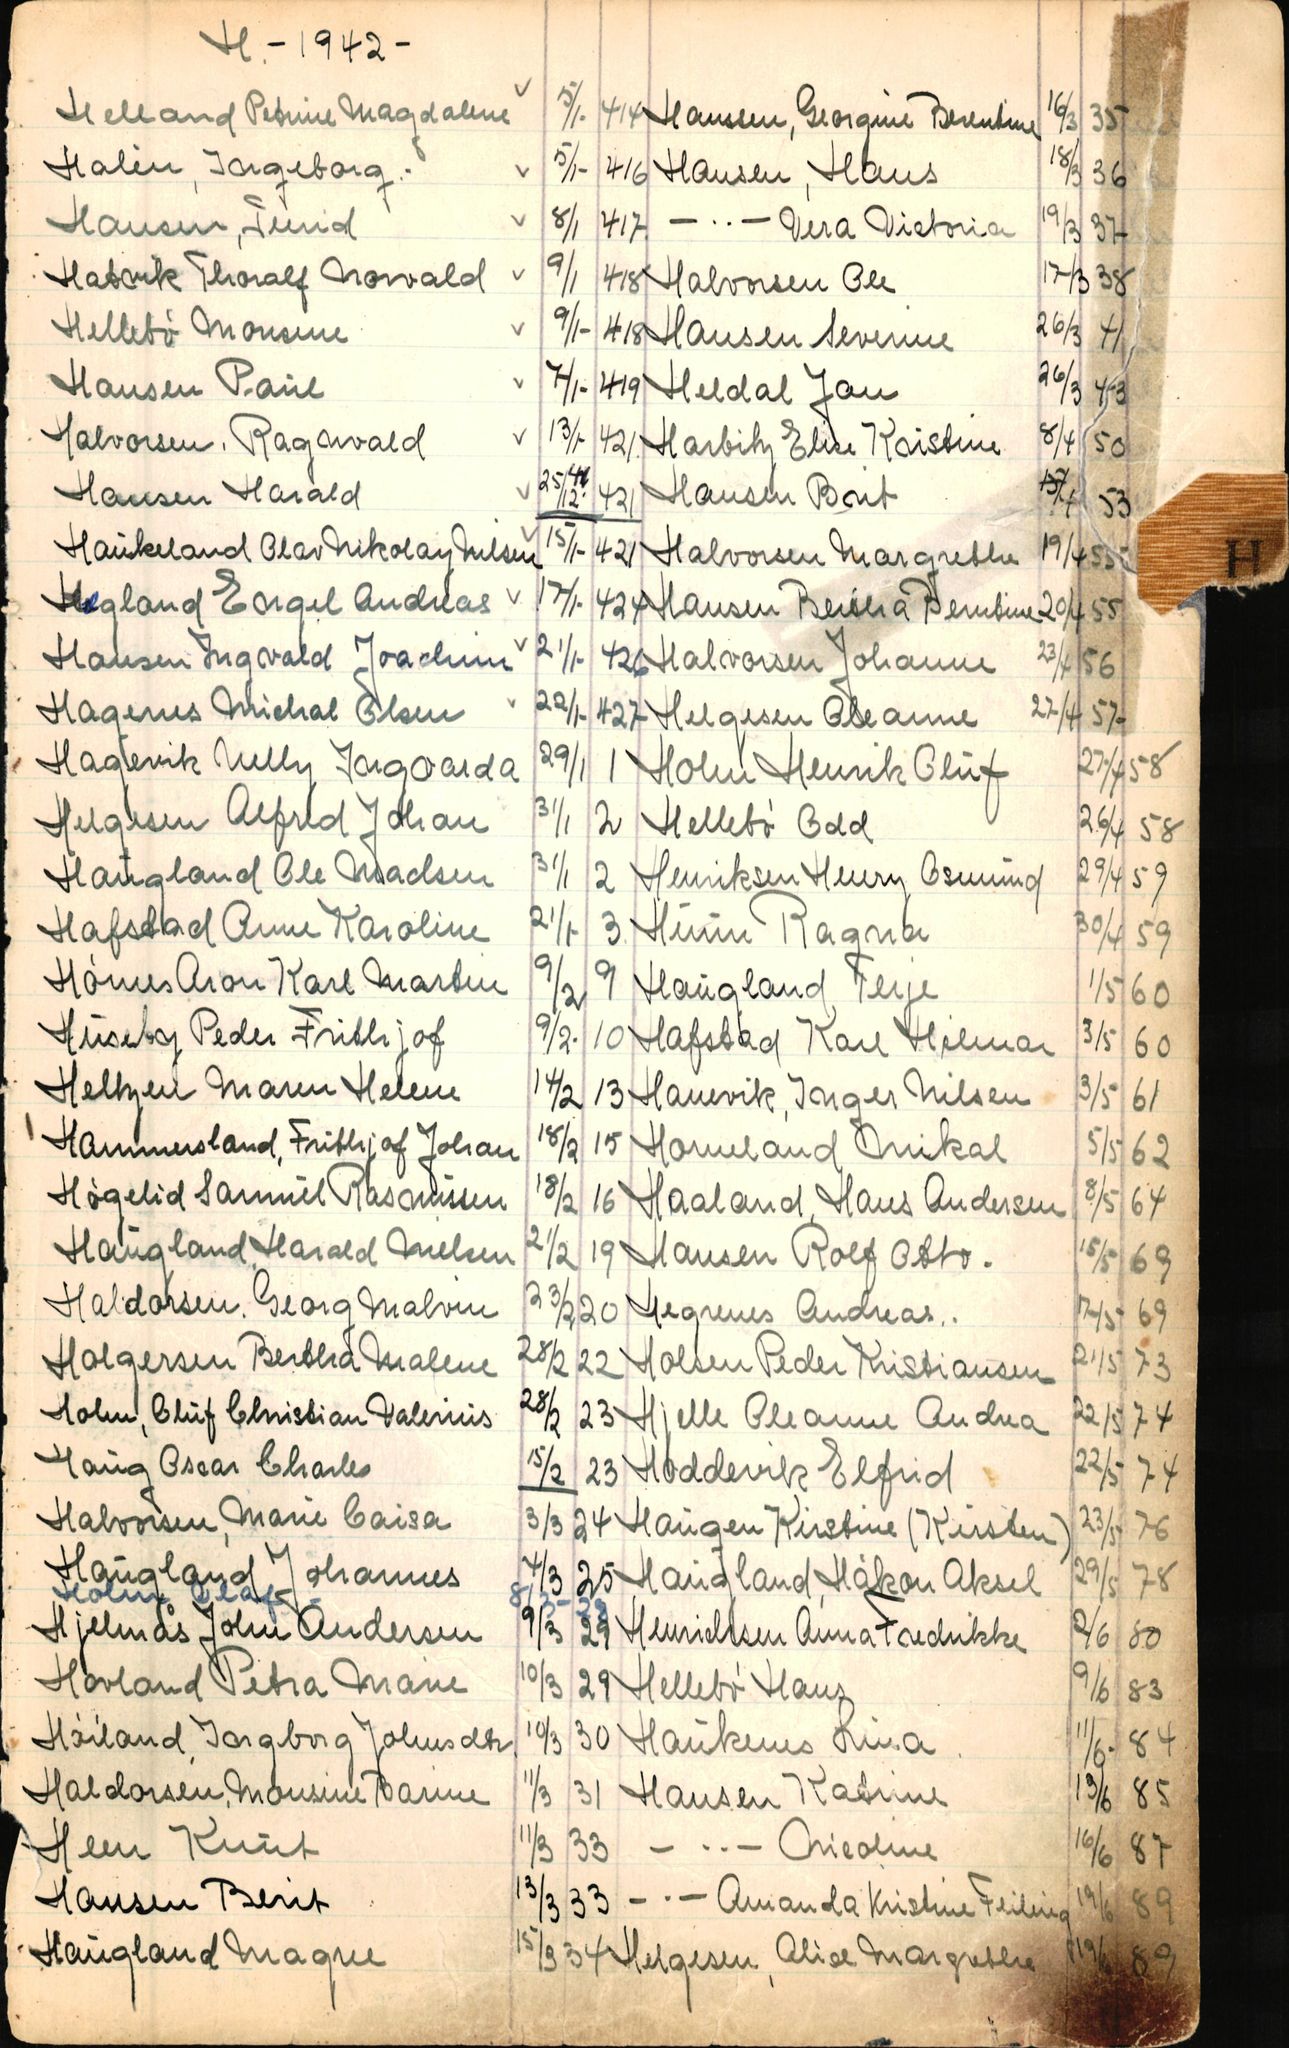 H. - 1942 -
Helland Petrine Magdalene v 5/1- 414 Hansen, Georgine Berentine 16/3 35
Halèn, Ingeborg. v 5/1- 416 Hansen, Hans 18/3 36
Hansen, v 8/1 417 - ·· - Vera Victoria 19/3 37
Hatvik Thoralf Norvald v 9/1 418 Halvorsen Ole 17/3 38
Hellebö Monsine v 9/1- 418 Hansen Severine 26/3 41
Hansen Paul v 7/1- 419 Heldal Jan 26/3 43
Halvorsen, Ragnvald v 13/1- 421 Harbitz Elise Kristine 8/4 50
Hansen Harald v 25/12 41 421 Hansen Berit 53
Haukeland Olav Nikolay Nilsen v 15/1- 421 Halvorsen Margrethe 19/4 55
Hegland Engel Andreas v 17/1- 424 Hansen Bertha Berntine 20/4 55
Hansen Ingvald Joachim v 21/1- 426 Halvorsen Johanne 23/4 56
Hagenes Michal Olsen v 22/1- 427 Helgesen Oleanne 27/4 57
Hagevik Nelly Ingvarda 29/1 1 Holm Henrik Oluf 27/4 58
Helgesen Alfred Johan 31/1 2 Hellebö Odd 26/4 58
Haugland Ole Madsen 31/1 2 Henriksen Henry Osmund 29/4 59
Hafstad Anne Karoline 21/1- 3 Hunn Ragna 30/4 59
Hörnes Aron Karl Martin 9/2 9 Haugland Terje 1/5 60
Huseby Peder Frithjof 9/2- 10 Hafstad Karl Hilmar 3/5 60
Heltzen Maren Helene 14/2 13 Hanevik, Inger Nilsen 3/5 61
Hammersland, Frithjof Johan 18/2 15 Horneland Mikal 5/5 62
Högelid Samuel Rasmussen 18/2 16 Haaland, Hans Andersen 8/5 64
Haugland, Harald Nielsen 21/2 19 Hansen Rolf Otto. 15/5 69
Haldorsen, Georg Malvin 23/2 20 Hegrenes Andreas.. 17/5 69
Holgersen Bertha Malene 28/2 22 Holsen Peder Kristiansen 21/5 73
Holm, Oluf Christian Valerius 28/2 23 Hjelle Oleanne Andrea 22/5 74
Haug Oscar Charles 15/2 23 Hoddevik Elfrid 22/5 74
Halvorsen, Marie Caisa 3/3 24 Haugen Kirstine (Kirsten) 23/5 76
Haugland Johannes 4/3 25 Haugland, Håkon Aksel 29/5 78
Holm Olaf - 8/3 - 28
Hjelmås John Andersen 9/3 29 Henrichsen Anna Fredrikke 2/6 80
Hovland Petra Marie 10/3 29 Hellebö Hans 9/6 83
Höiland, Ingborg Johnsdtr. 10/3 30 Haukenes Lina 11/6- 84
Haldorsen, Monsine Karine 11/3 31 Hansen Katrine 13/6 85
Heen Knut 11/3 33 - ·· - Nicoline 16/6 87
Hansen Berit 13/3 33 - ·· - Amanda Kristine 19/6 89
Haugland Magne 15/3 34 Helgesen, Alice Margrethe 19/6 89
H